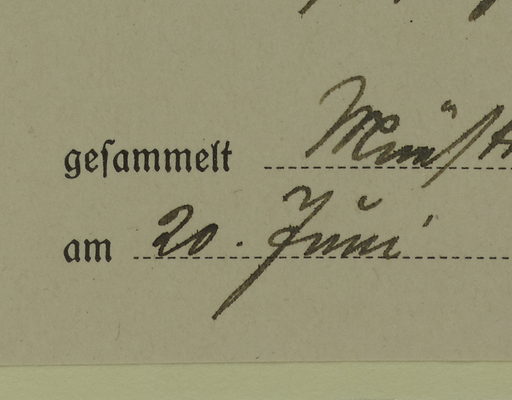 geſammelt Münst
am 20. Juni